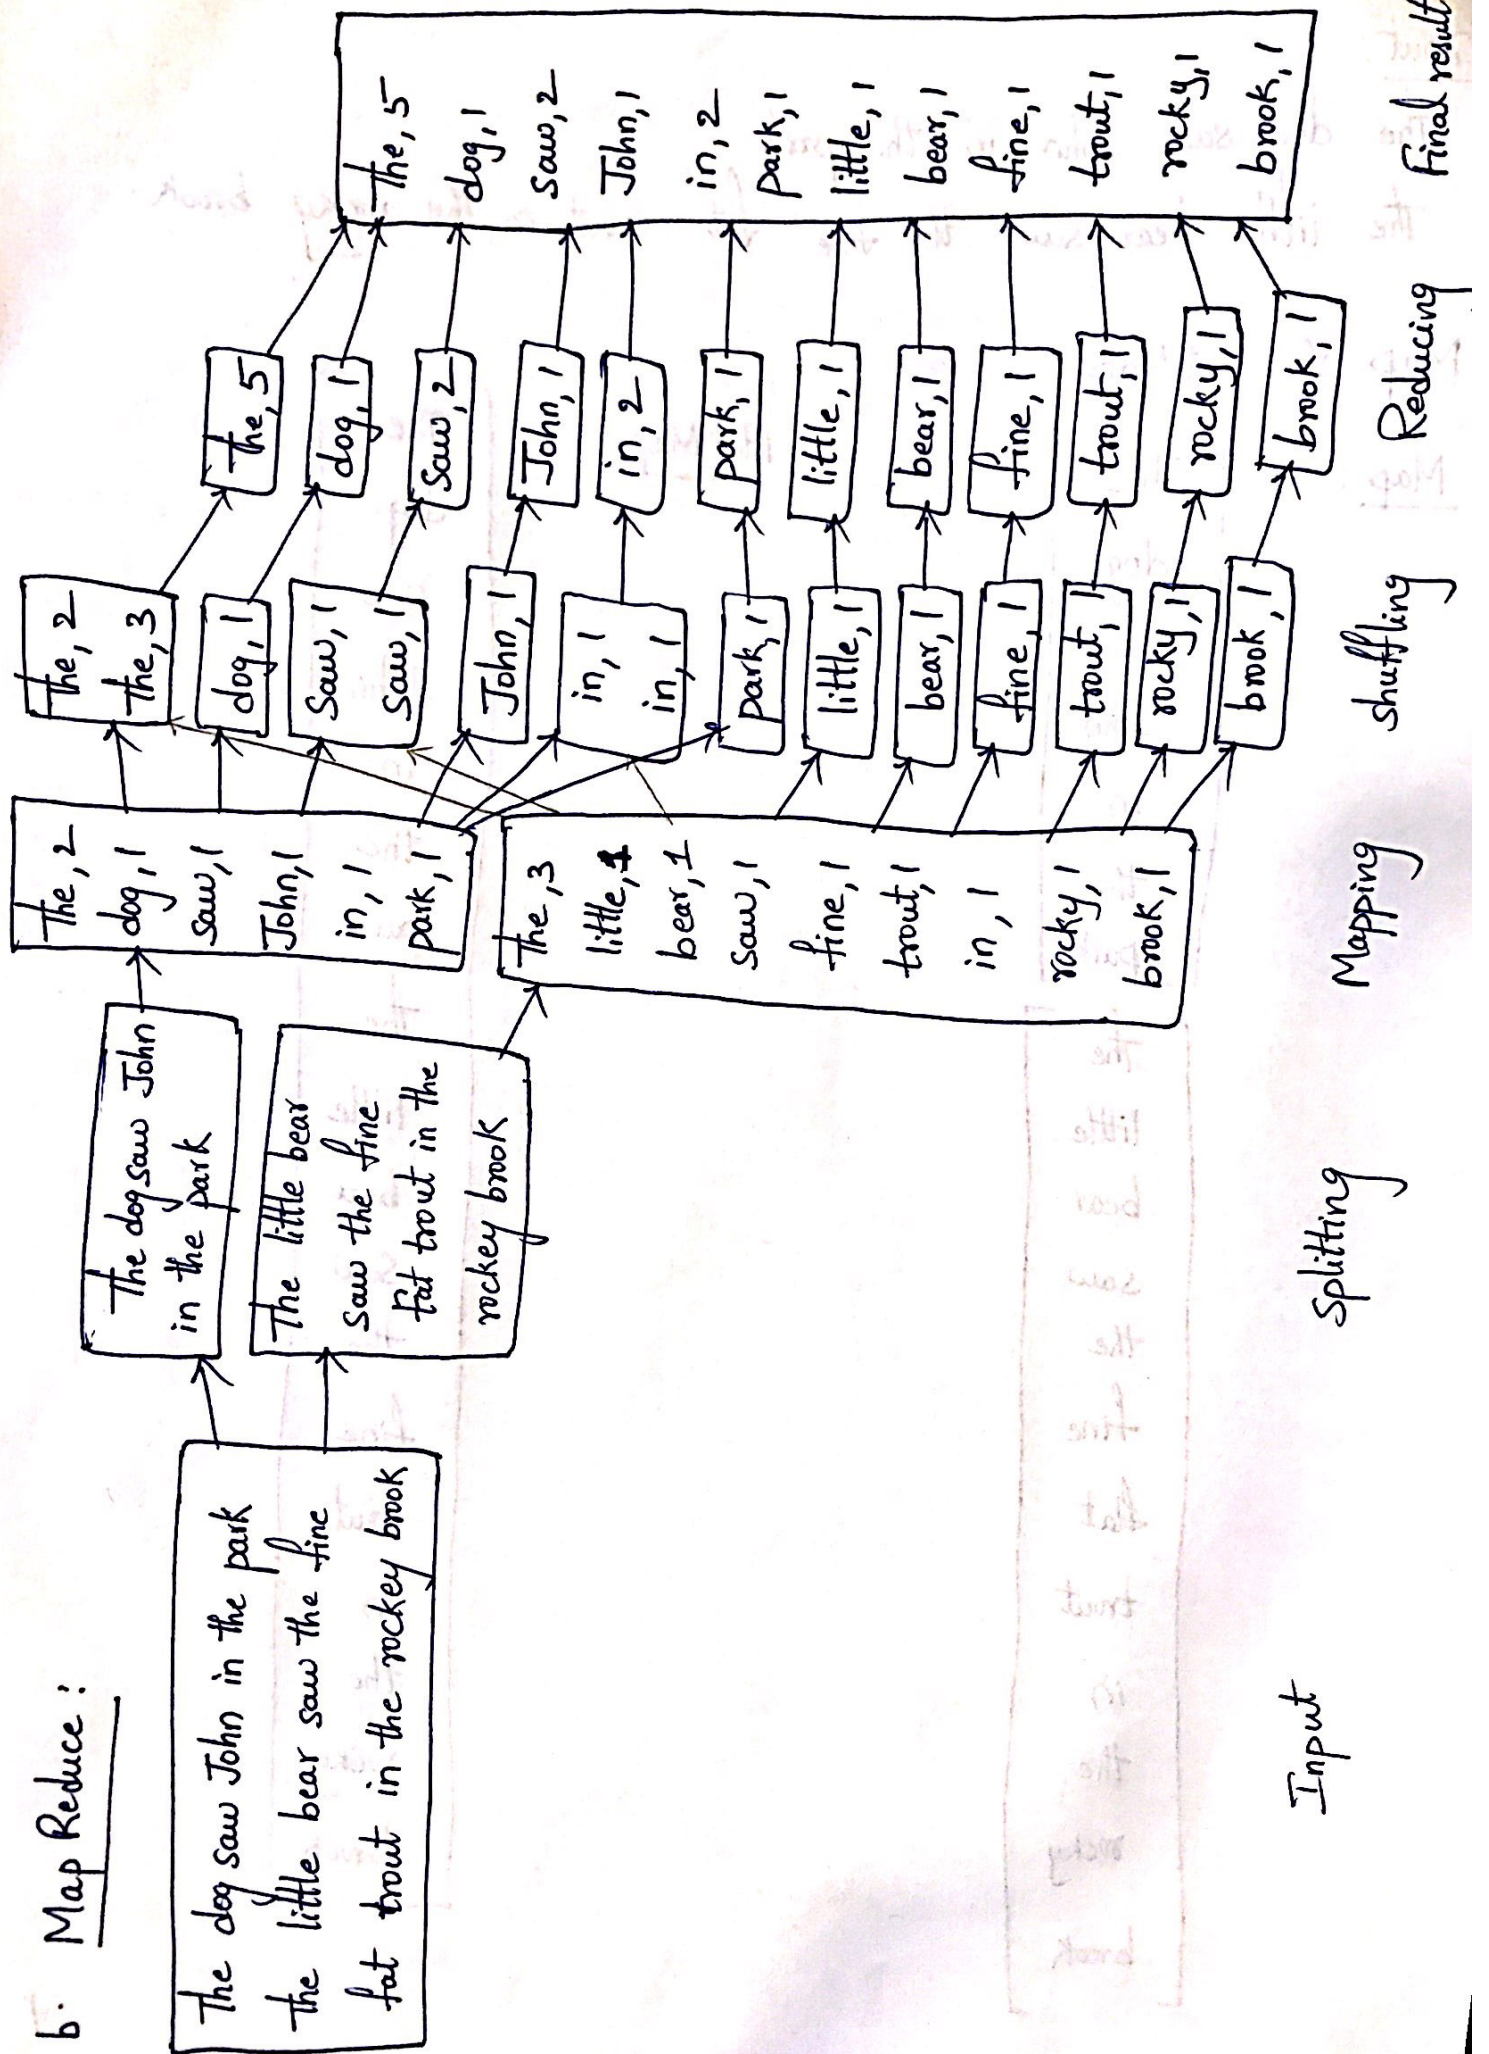 b. Map Reduce :
The dog saw John in the park
the little bear saw the fine
fat trout in the rockey brook
The dog saw John
in the park
The little bear
saw the fine
fat trout in the
rockey brook
The, 2
dog, 1
saw, 1
John, 1
in, 1
park, 1
The, 3
little, 1
bear, 1
saw, 1
fine, 1
trout, 1
in, 1
rocky, 1
brook, 1
The, 2
the, 3
dog, 1
Saw, 1
Saw, 1
John, 1
in, 1
in, 1
park, 1
little, 1
bear, 1
fine, 1
trout, 1
rocky, 1
brook, 1
the, 5
dog, 1
Saw, 2
John, 1
in, 2
park, 1
little, 1
bear, 1
fine, 1
trout, 1
rocky, 1
brook, 1
The, 5
dog, 1
Saw, 2
John, 1
in, 2
park, 1
little, 1
bear, 1
fine, 1
trout, 1
rocky, 1
brook, 1
Input
Splitting
Mapping
shuffling
Reducing
Final result